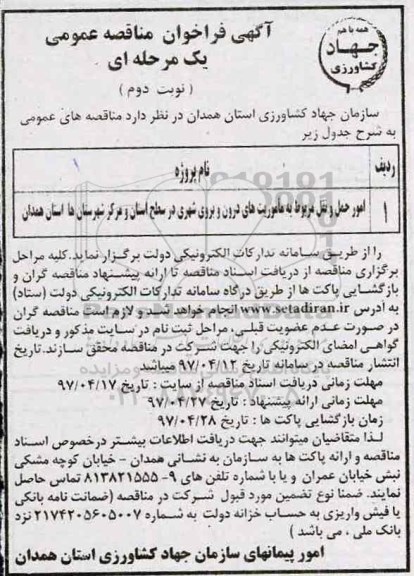 همه با هم
جهاد
کشاورزی
آگهی فراخوان مناقصه عمومی
یک مرحله ای
( نوبت دوم )
سازمان جهاد کشاورزی استان همدان در نظر دارد مناقصه های عمومی
به شرح جدول زیر
ردیف
نام پروژه
۱
امور حمل و نقل مربوط به ماموریت های درون و برون شهری در سطح استان و مرکز شهرستان ها استان همدان
را از طریق سامانه تدارکات الکترونیکی دولت برگزار نماید.کلیه مراحل
برگزاری مناقصه از دریافت اسناد مناقصه تا ارائه پیشنهاد مناقصه گران و
بازگشایی پاکت ها از طریق درگاه سامانه تدارکات الکترونیکی دولت (ستاد)
به ادرس www.setadiran.ir انجام خواهد شد و لازم است مناقصه گران
در صورت عدم عضویت قبلی، مراحل ثبت نام در سایت مذکور و دریافت
گواهی امضای الکترونیکی را جهت شرکت در مناقصه محقق سازند. تاریخ
انتشار مناقصه در سامانه تاریخ ۹۷/۰۴/۱۲ میباشد
مهلت زمانی دریافت اسناد مناقصه از سایت : تاریخ ۹۷/۰۴/۱۷
مهلت زمانی ارائه پیشنهاد : تاریخ ۹۷/۰۴/۲۷
زمان بازگشایی پاکت ها : تاریخ ۹۷/۰۴/۲۸
لذا متقاضیان میتوانند جهت دریافت اطلاعات بیشتر درخصوص اسناد
مناقصه و ارائه پاکت ها به سازمان به نشانی همدان - خیابان کوچه مشکی
نبش خیابان عمران و یا با شماره تلفن های ۹- ۸۱۳۸۲۱۵۵۵ تماس حاصل
نمایند. ضمنا نوع تضمین مورد قبول شرکت در مناقصه (ضمانت نامه بانکی
یا فیش واریزی به حساب خزانه دولت به شماره ۲۱۷۴۲۰۵۶۰۵۰۰۷ نزد
بانک ملی ، می باشد )
امور پیمانهای سازمان جهاد کشاورزی استان همدان